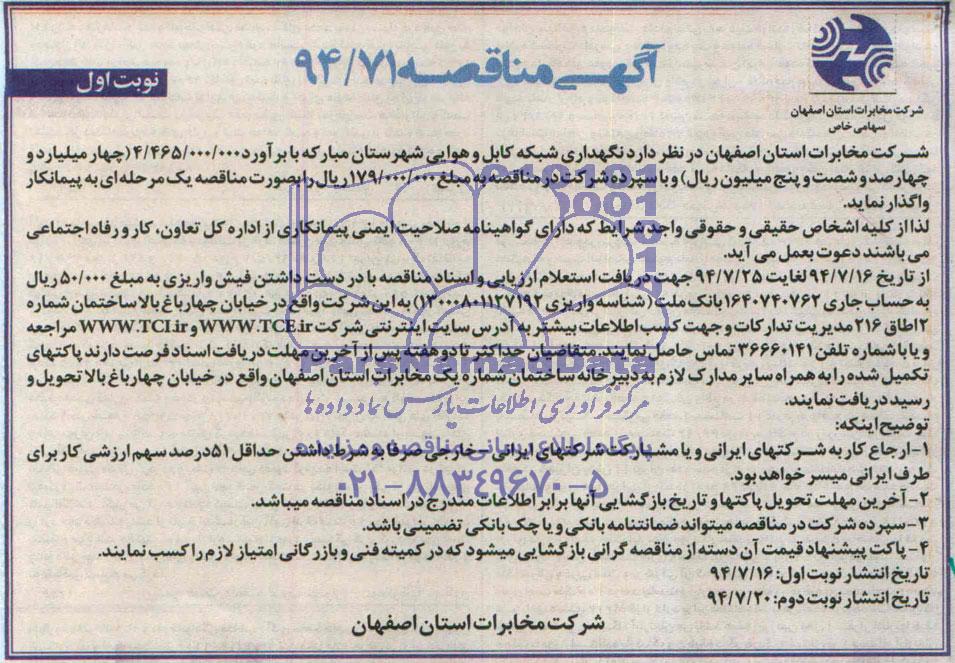 آگهـی مناقصـه ۹۴/۷۱
نوبت اول
شرکت مخابرات استان اصفهان
سهامی خاص
شـرکت مخابرات استان اصفهان در نظر دارد نگهداری شبکه کابل و هوایی شهرستان مبارکه با برآورد ۴/۴۶۵/۰۰۰/۰۰۰ (چهار میلیارد و
چهارصد و شصت و پنج میلیون ریال) و با سپرده شرکت در مناقصه به مبلغ ۱۷۹/۰۰۰/۰۰۰ ریال را بصورت مناقصه یک مرحله ای به پیمانکار
واگذار نماید.
لذا از کلیه اشخاص حقیقی و حقوقی واجد شرایط که دارای گواهینامه صلاحیت ایمنی پیمانکاری از اداره کل تعاون، کار و رفاه اجتماعی
می باشند دعوت بعمل می آید.
از تاریخ ۹۴/۷/۱۶ لغایت ۹۴/۷/۲۵ جهت دریافت استعلام ارزیابی و اسناد مناقصه با در دست داشتن فیش واریزی به مبلغ ۵۰/۰۰۰ ریال
به حساب جاری ۱۶۴۰۷۴۰۷۶۲ بانک ملت (شناسه واریزی ۱۳۰۰۰۸۰۱۱۲۷۱۹۲) به این شرکت واقع در خیابان چهارباغ بالا ساختمان شماره
۲ اطاق ۲۱۶ مدیریت تدارکات و جهت کسب اطلاعات بیشتر به آدرس سایت اینترنتی شرکت WWW.TCE.ir و WWW.TCI.ir مراجعه
و یا با شماره تلفن ۳۶۶۶۰۱۴۱ تماس حاصل نمایند. متقاضیان حداکثر تا دو هفته پس از آخرین مهلت دریافت اسناد فرصت دارند پاکتهای
تکمیل شده را به همراه سایر مدارک لازم به دبیرخانه ساختمان شماره یک مخابرات استان اصفهان واقع در خیابان چهارباغ بالا تحویل و
رسید دریافت نمایند.
توضیح اینکه:
۱- ارجاع کار به شـرکتهای ایرانی و یا مشارکت شرکتهای ایرانی - خارجی صرفا به شرط داشتن حداقل ۵۱ درصد سهم ارزشی کار برای
طرف ایرانی میسر خواهد بود.
۲- آخرین مهلت تحویل پاکتها و تاریخ بازگشایی آنها برابر اطلاعات مندرج در اسناد مناقصه میباشد.
۳- سپرده شرکت در مناقصه میتواند ضمانتنامه بانکی و یا چک بانکی تضمینی باشد.
۴- پاکت پیشنهاد قیمت آن دسته از مناقصه گرانی بازگشایی میشود که در کمیته فنی و بازرگانی امتیاز لازم را کسب نمایند.
تاریخ انتشار نوبت اول: ۹۴/۷/۱۶
تاریخ انتشار نوبت دوم: ۹۴/۷/۲۰
شرکت مخابرات استان اصفهان
ParsNamadData
مرکز فرآوری اطلاعات پارس نماد داده ها
پایگاه اطلاع رسانی مناقصه و مزایده
۰۲۱-۸۸۳۴۹۶۷۰-۵